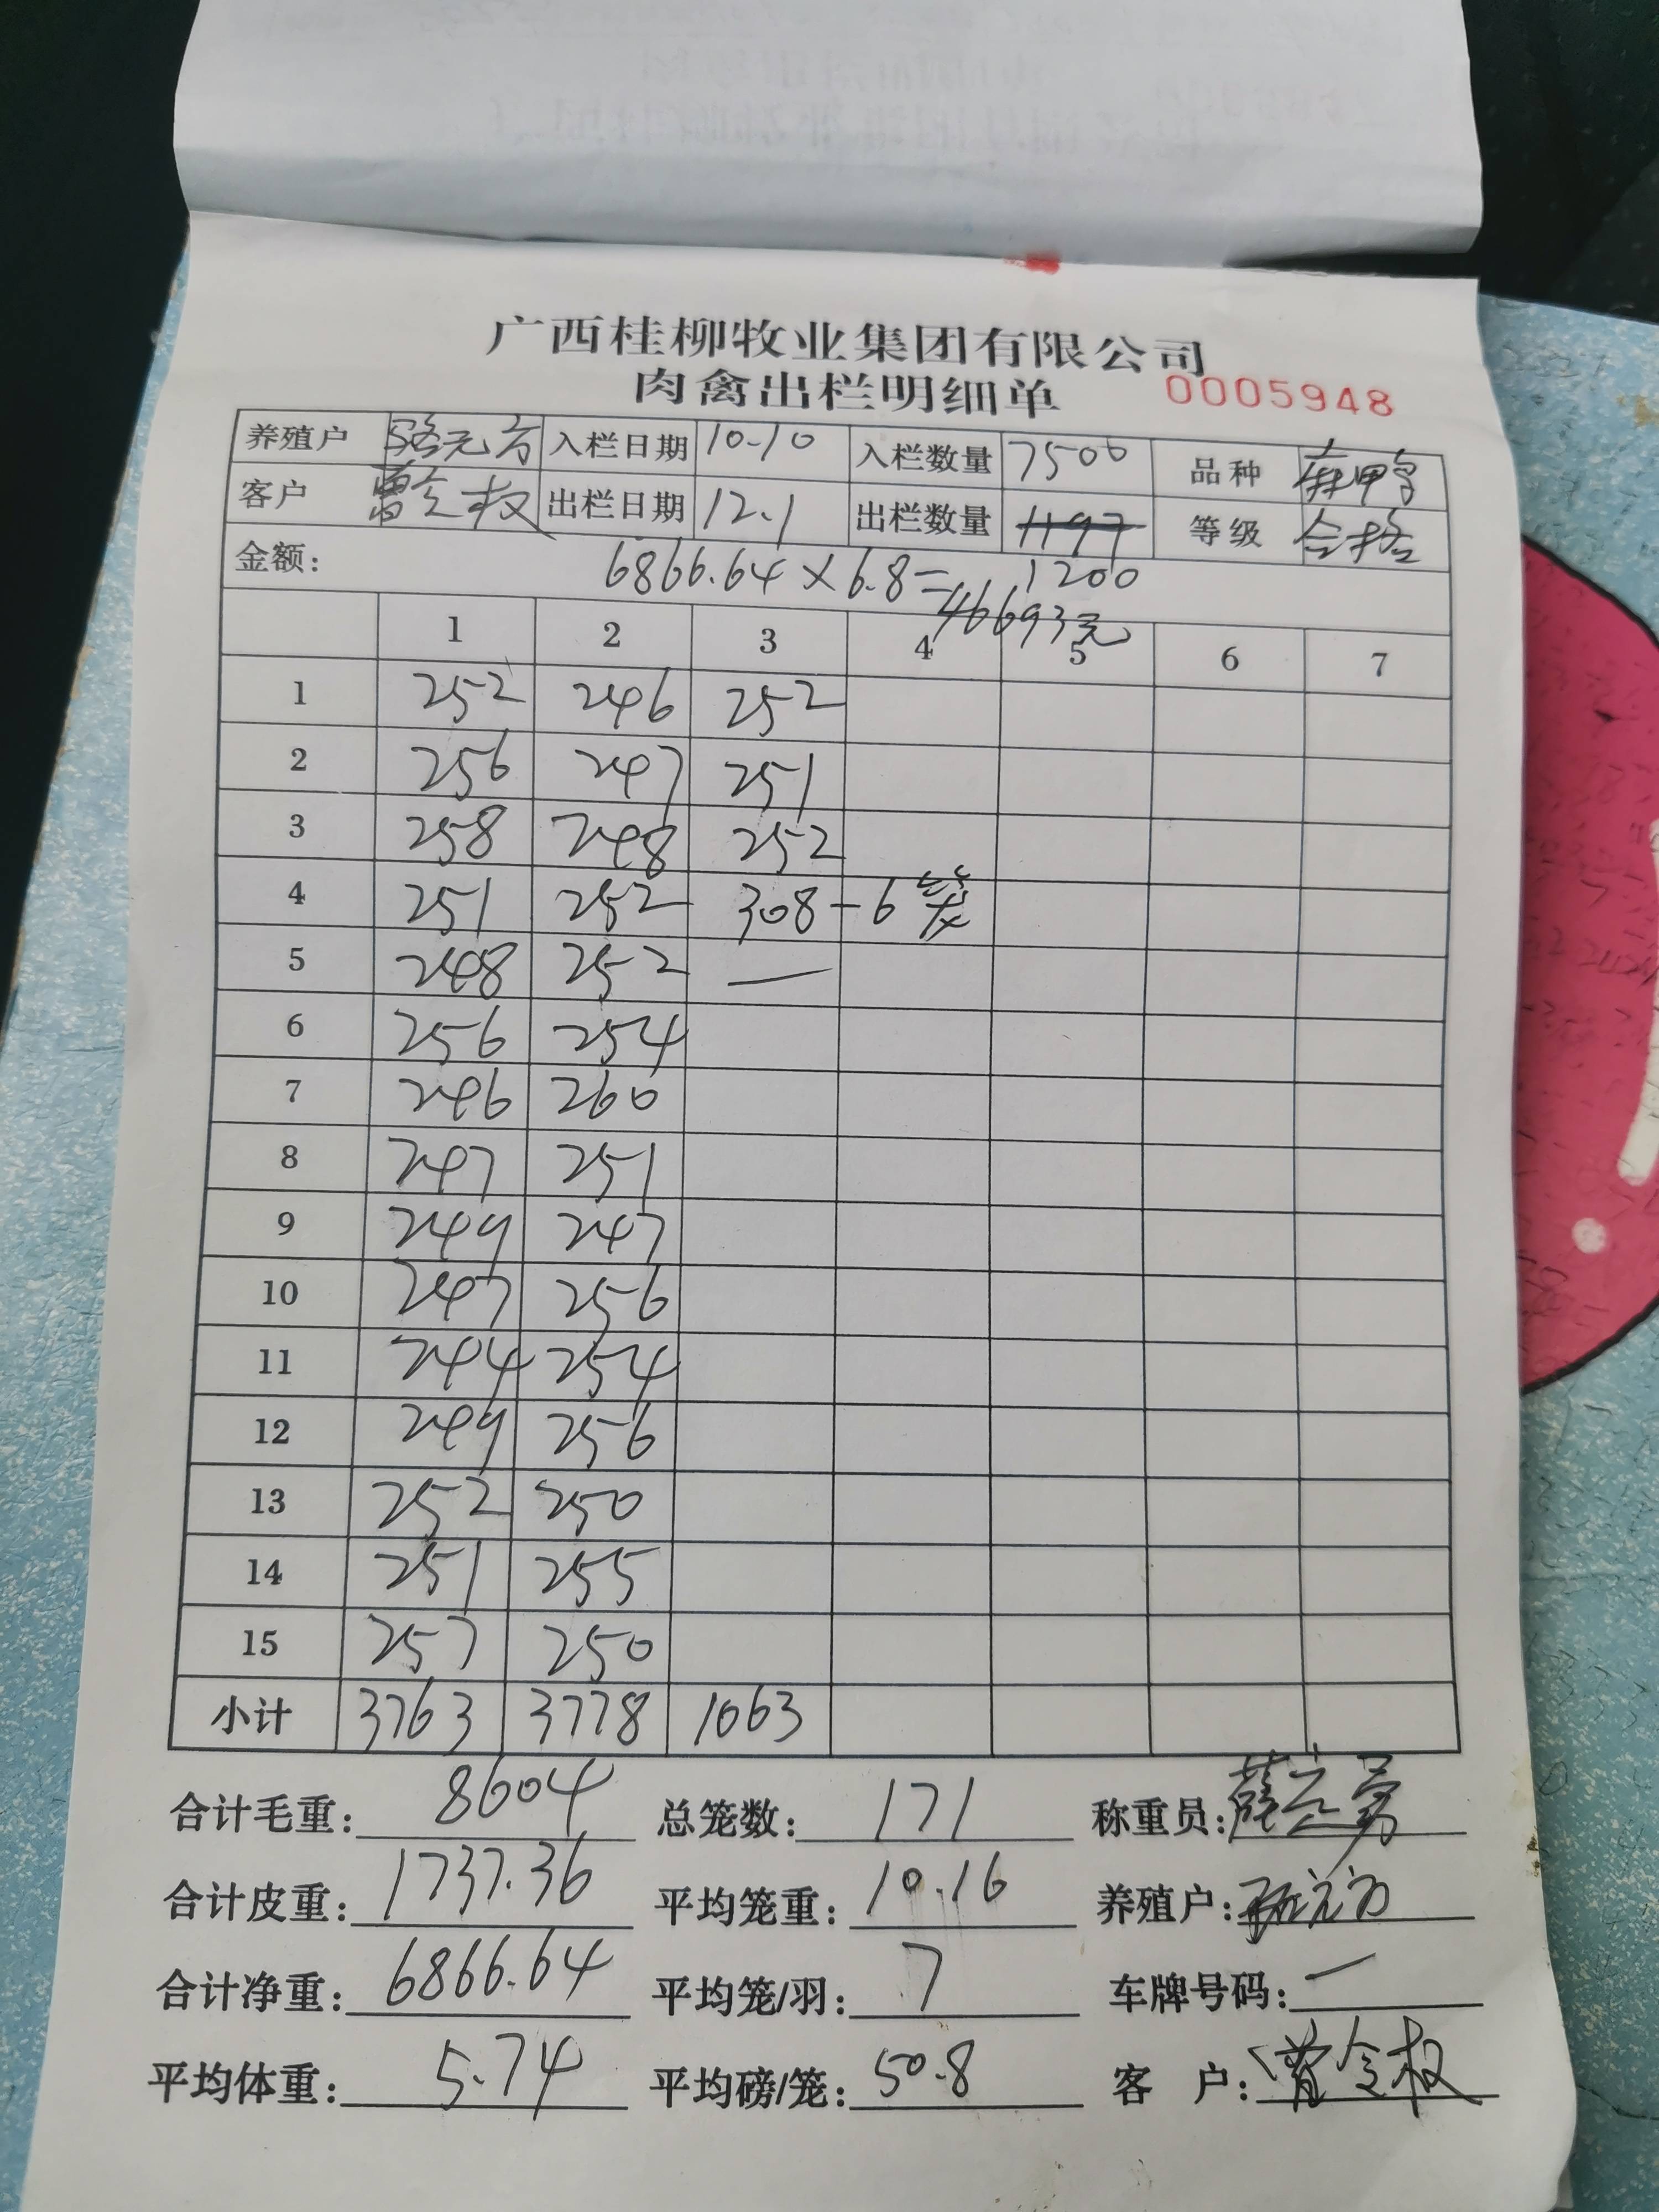 广西桂柳牧业集团有限公司
肉禽出栏明细单 0005948
养殖户 骆元方 入栏日期 10.10 入栏数量 7500 品种 麻鸭
客户 曾令权 出栏日期 12.1 出栏数量 1197 等级 合格
金额: 6866.64×6.8= 1200
46693元
1 2 3 4 5 6 7
1 252 246 252
2 256 247 251
3 258 248 252
4 251 252 308-6笼
5 248 252 —
6 256 254
7 246 260
8 247 251
9 249 247
10 247 256
11 244 254
12 249 256
13 252 250
14 251 255
15 257 250
小计 3763 3778 1063
合计毛重: 8604 总笼数: 171 称重员:
合计皮重: 1737.36 平均笼重: 10.16 养殖户: 骆元方
合计净重: 6866.64 平均笼/羽: 7 车牌号码: —
平均体重: 5.74 平均磅/笼: 50.8 客 户: 曾令权